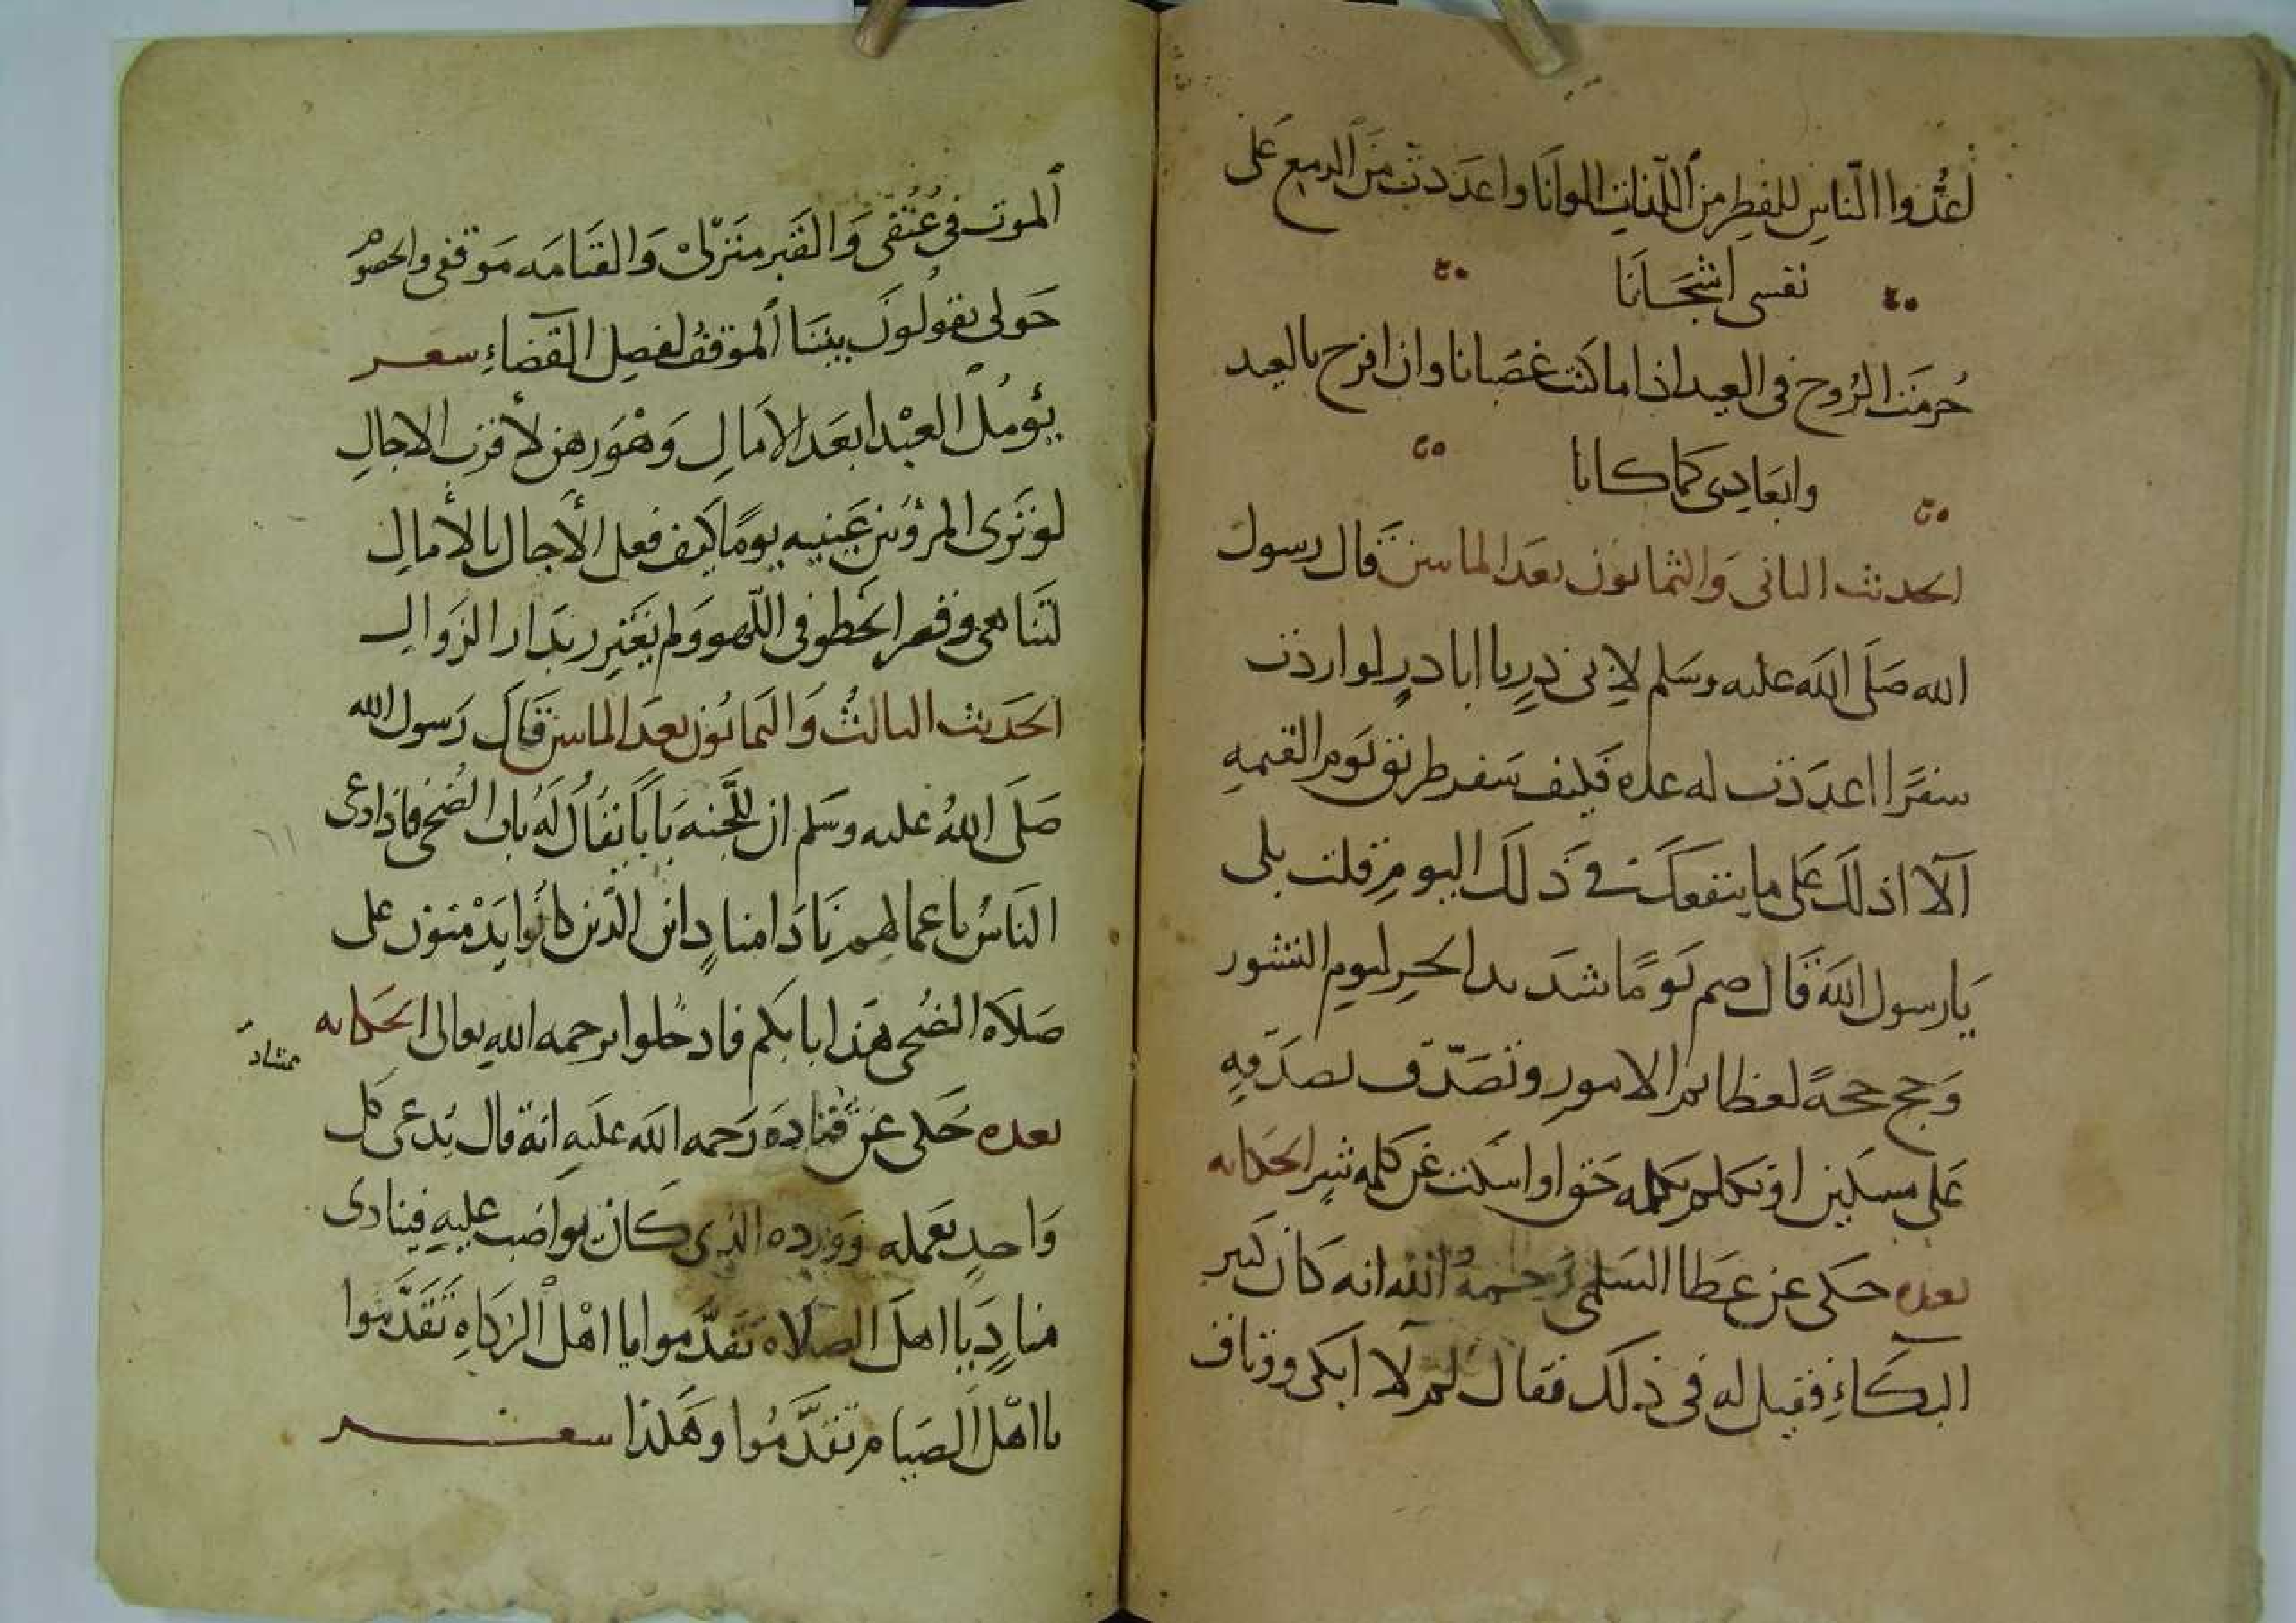 أعدوا الناس للفطر من اللذات الوانا واعددت من الدمع على
نفسى اشجانا
حرمت الروح فى العيد اذا ما كنت غضبانا وان افرح بالعيد
وابعادى كما كانا
الحديث الثانى والثمانون بعد المايتين قال رسول
الله صلى الله عليه وسلم لابى ذر يا ابا ذر لو اردت
سفرا اعددت له عده فكيف سفر طريق يوم القيمه
الا ادلك على ما ينفعك فى ذلك اليوم قلت بلى
يا رسول الله قال صم يوما شديد الحر ليوم النشور
وحج حجة لعظايم الامور وتصدق بصدقه
على مسكين او تكلم بكلمه حق او اسكت عن كلمه شر الحكايه
بعده حكى عن عطا السلمى رحمه الله انه كان كثير
البكاء فقيل له فى ذلك فقال لم لا ابكى ووثاق
الموت فى عنقى والقبر منزلى والقيامه موقفى والخصوم
حولى يقولون بيننا الموقف لفصل القضاء شعر
يؤمل العبد ابعد الامال وهو رهن لأقرب الاجال
لو ترى المرؤ بين عينيه يوما كيف فعل الأجال بالأمال
لتناهى وقصر الخطو فى اللهو ولم يغترر بدار الزوال
الحديث الثالث والثمانون بعد المايتين قال رسول الله
صلى الله عليه وسلم ان للجنه بابا يقال له باب الضحى فاذا دعى
الناس باعمالهم نادا مناد اين الذين كانوا يدمنون على
صلاة الضحى هذا بابكم فادخلوا برحمه الله تعالى الحكايه
بعده حكى عن قتاده رحمه الله عليه انه قال يدعى كل
واحد بعمله وورده الذى كان يواضب عليه فينادى
مناد يا اهل الصلاه تقدموا يا اهل الزكاه تقدموا
يا اهل الصيام تقدموا وهكذا شعر